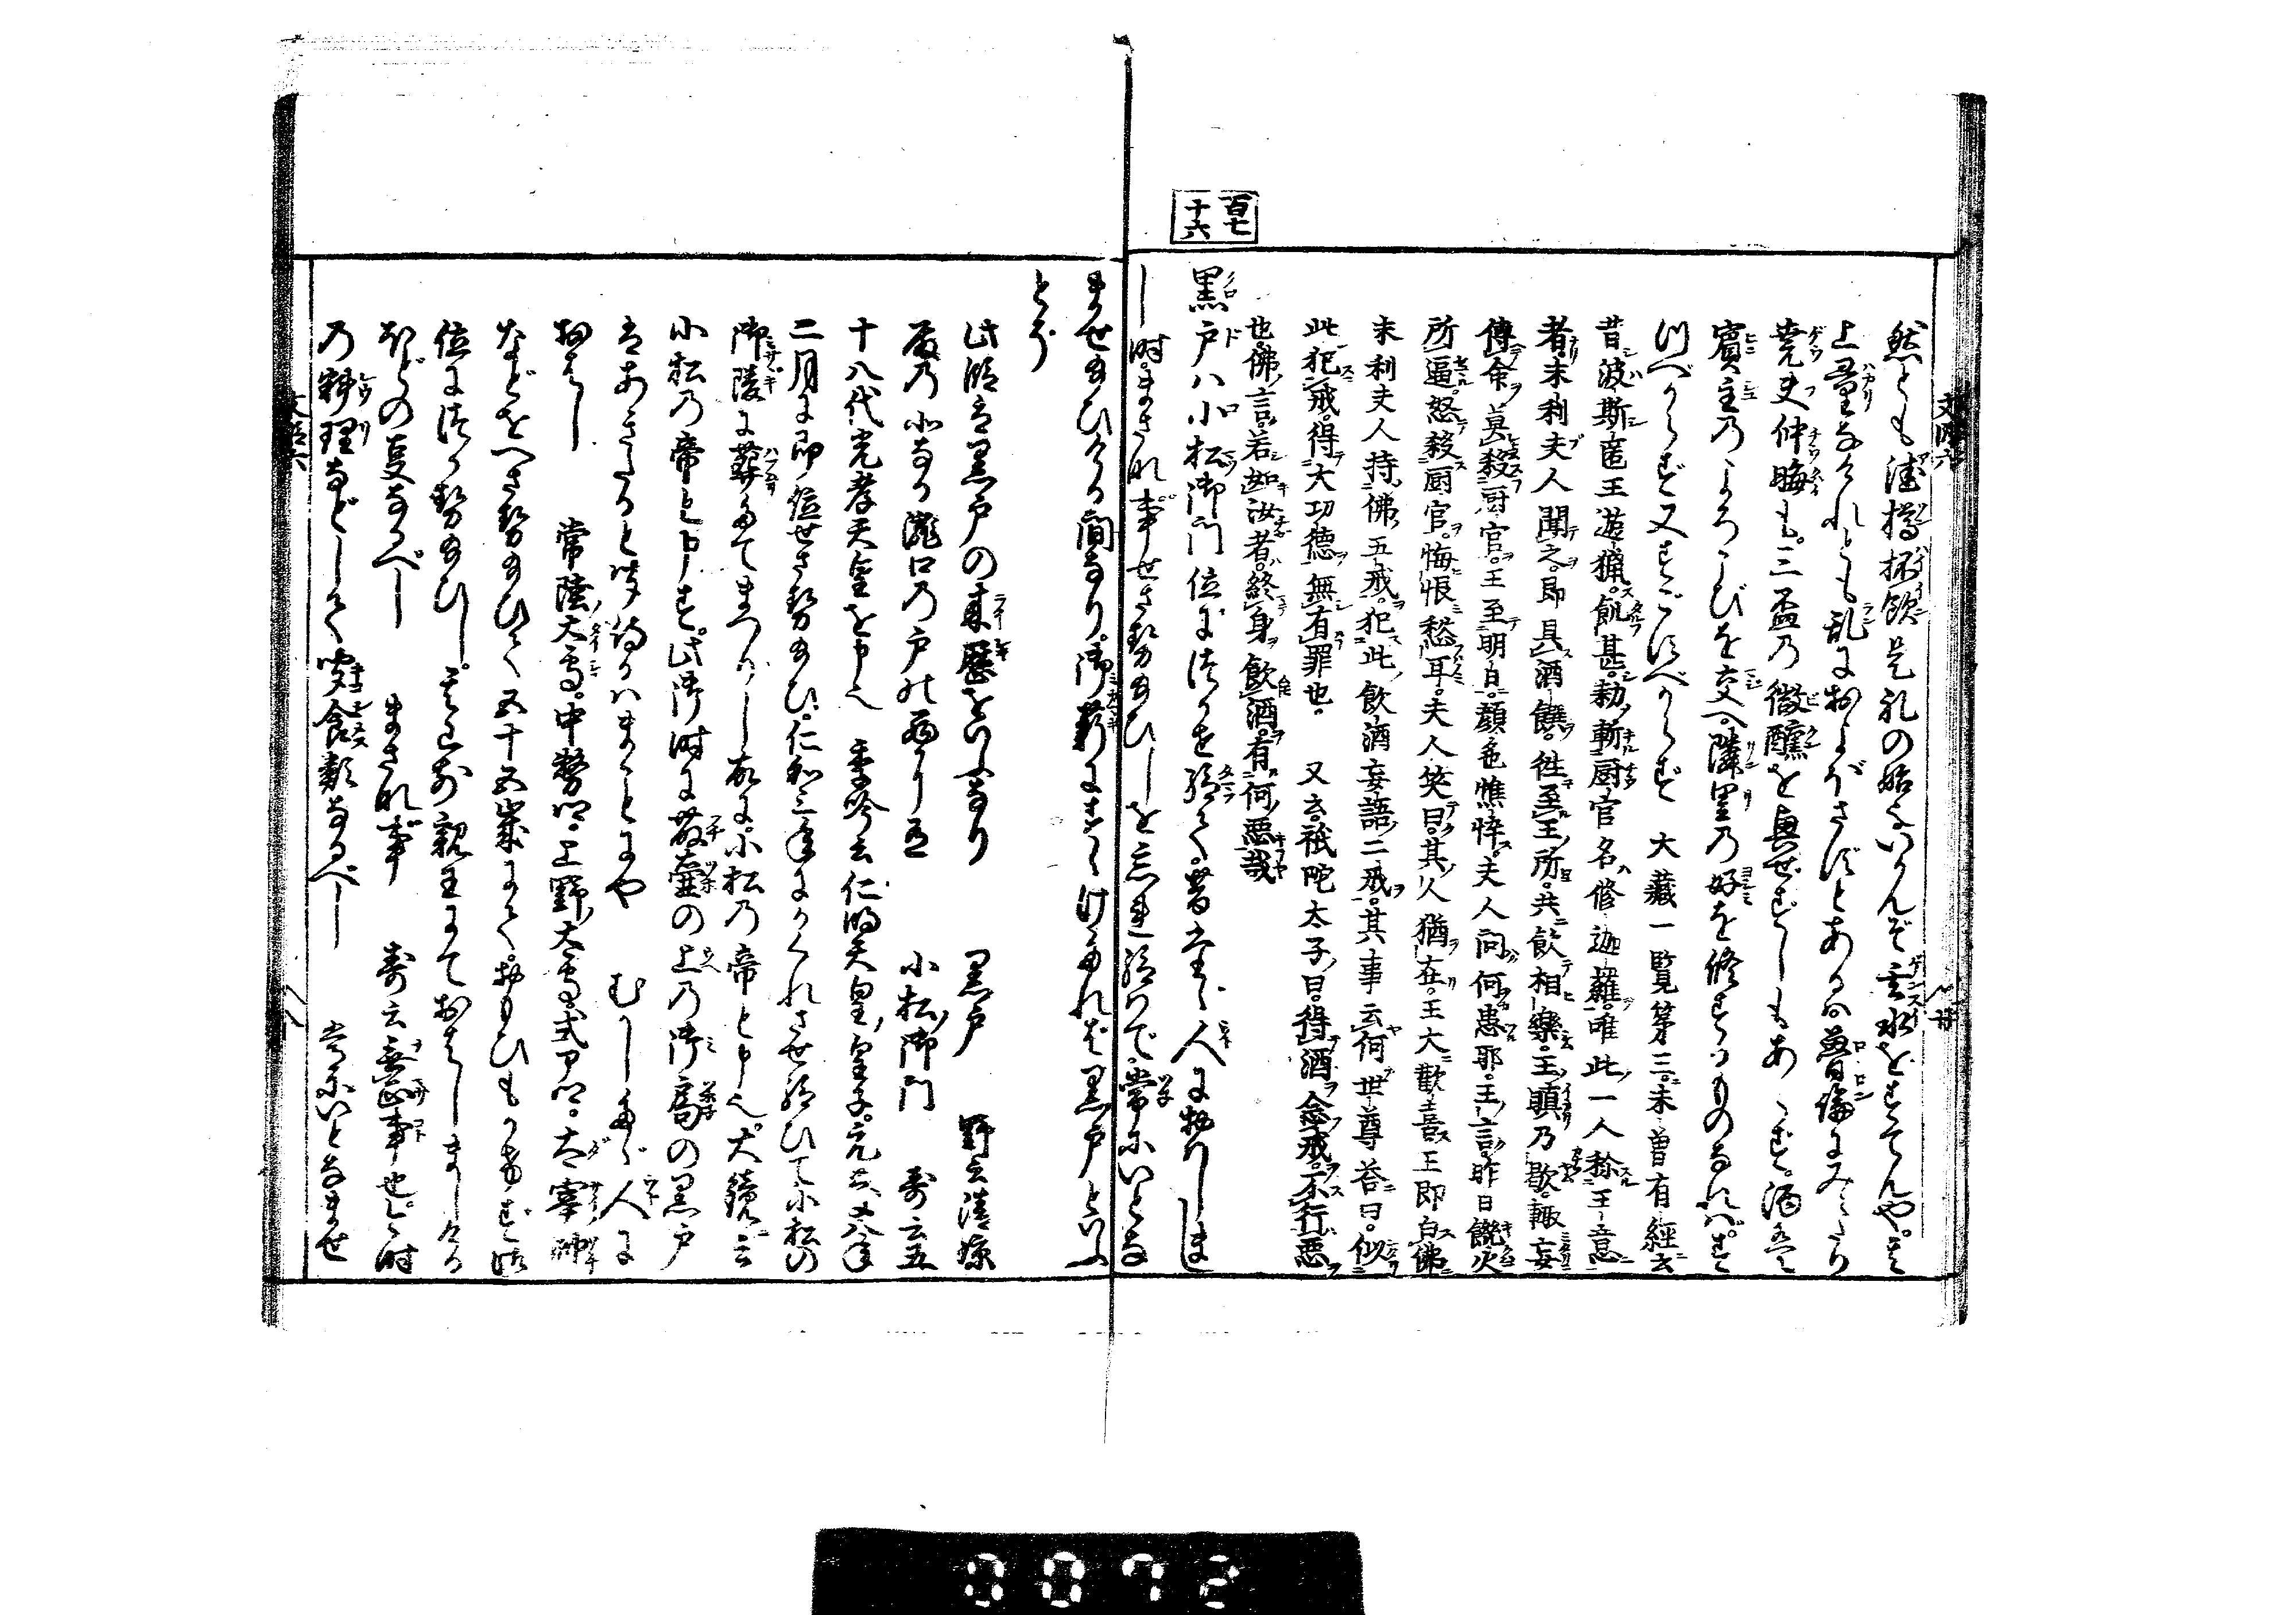 百七
十六
然とも汙樽抔飲是礼の始といかんぞ玄水をすてんや。又
上量なけれども。乱におよばさずとあるは魯論にみえたり
堯夫仲晦も。三盃乃微醺を無せずしもあらず。酒は
賓主乃よろこびを交へ。隣里乃好を修するものなれば。す
つべからず又すごすべからず　大藏一覧第三。未曽有經云
昔波斯匿王遊猟。飢甚。勅斬厨官名修迦羅。唯此一人称王意
者。末利夫人聞之。即具酒饌。往至王所。共飲相樂。王瞋乃歇。輙妄
傳命莫殺厨官。王至明日。顔色憔悴。夫人問何患耶。王言。昨日饑火
所逼。怒殺厨官。悔恨愁耳。夫人笑曰。其人猶在。王大歡喜王即白佛
末利夫人持佛五戒。犯此飲酒妄語二戒。其事云何世尊荅曰。似
此犯戒。得大功德無有罪也。　又云祇陀太子曰。得酒念戒。不行悪
也。佛言。若如汝者。終身飲酒。有何悪哉
黒戸ハ小松御門位につかせ給て。昔たゝ人に物おはしま
し時。まさな事せさせ給ひしを忘れ給はで。常にいとなま
ませ給ひける間なり。御薪にすゝけたれば黒戸といふ
とぞ
此段は黒戸の来歴をいふなり　黒戸　野云清凉
殿乃北なる瀧口乃戸の西なり　小松御門　壽云五
十八代光孝天皇を申也　季吟云仁明天皇皇子。元慶八年
二月に即位せさせ給ひ。仁和三年にかくれさせ給ひて小松の
御陵に葬たてまつりし故に。小松乃帝と申也。大鏡云
小松乃帝と申す。此御時に藤壷の上乃御局の黒戸
はあきたると聞侍るハまことにや　むかしたゝ人に
物おはし　常陸大守。中務卿。上野大守。式部卿。太宰帥
などをへさせ給ひて五十五歳にて。おもひもかけず御
位につかせ給ひし。其已前親王にておはしましける
ほどの事なるべし　まさな事　壽云無正事也。其時
乃料理などして聞食類なるべし　常にいとなませ